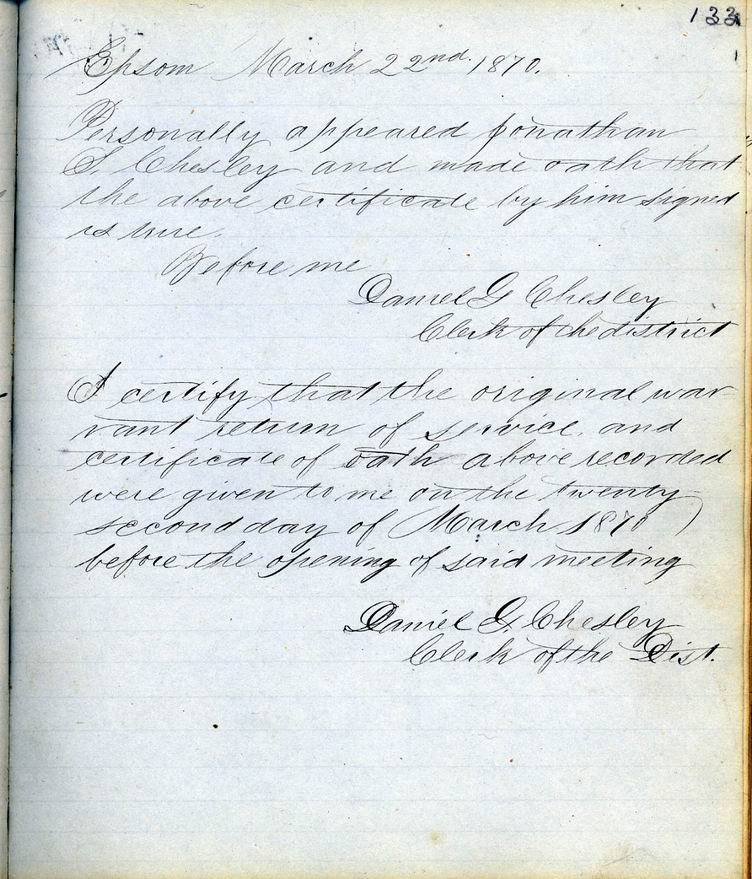 133
Epsom March 22nd 1870.
Personally appeared Jonathan
S. Chesley and made oath that
the above certificate by him signed
is true.
Before me
Daniel G Chesley
Clerk of the district
I certify that the original war-
rant return of service and
certificate of oath above recorded
were given to me on the twenty
second day of March 1870
before the opening of said meeting
Daniel G. Chesley
Clerk of the Dist.